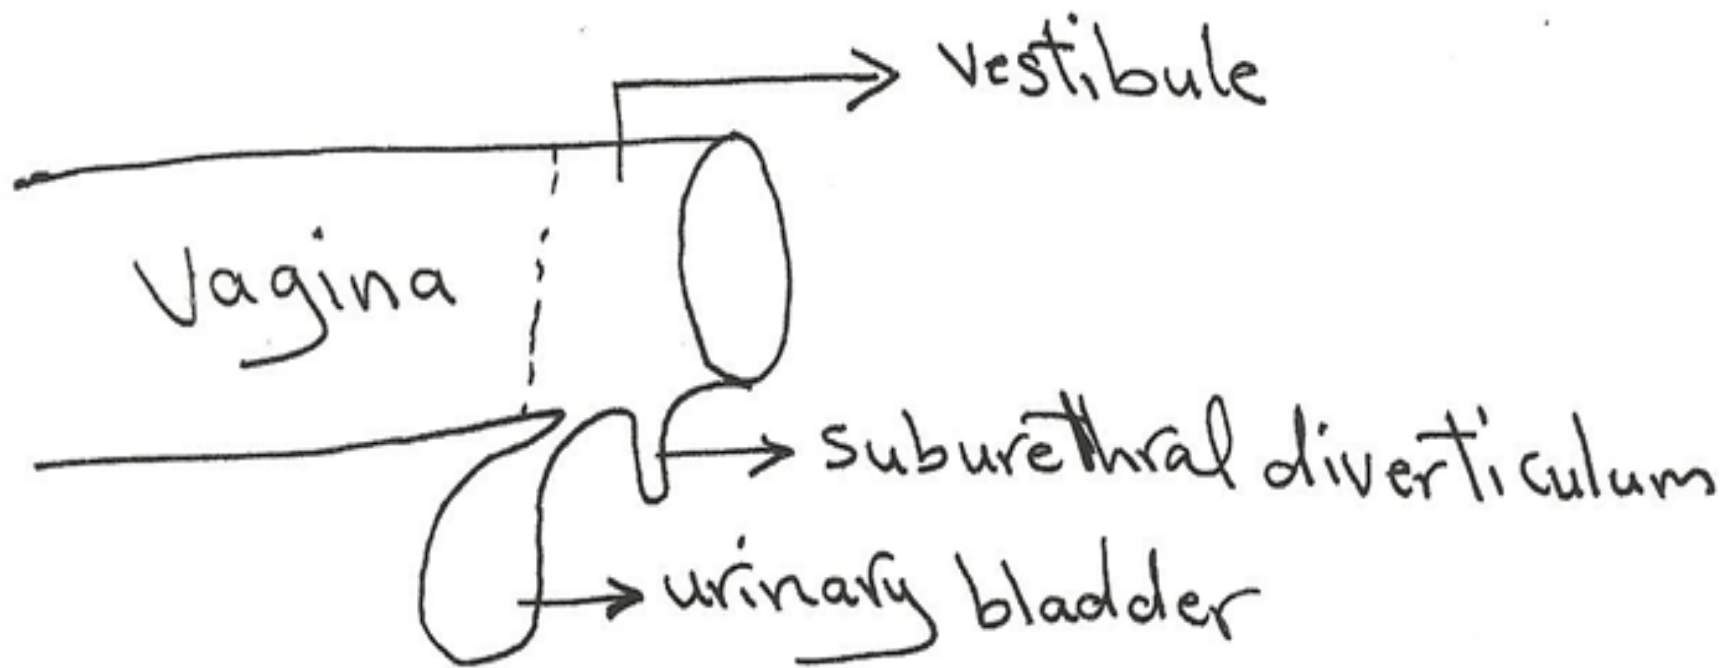 vestibule
Vagina
suburethral diverticulum
urinary bladder